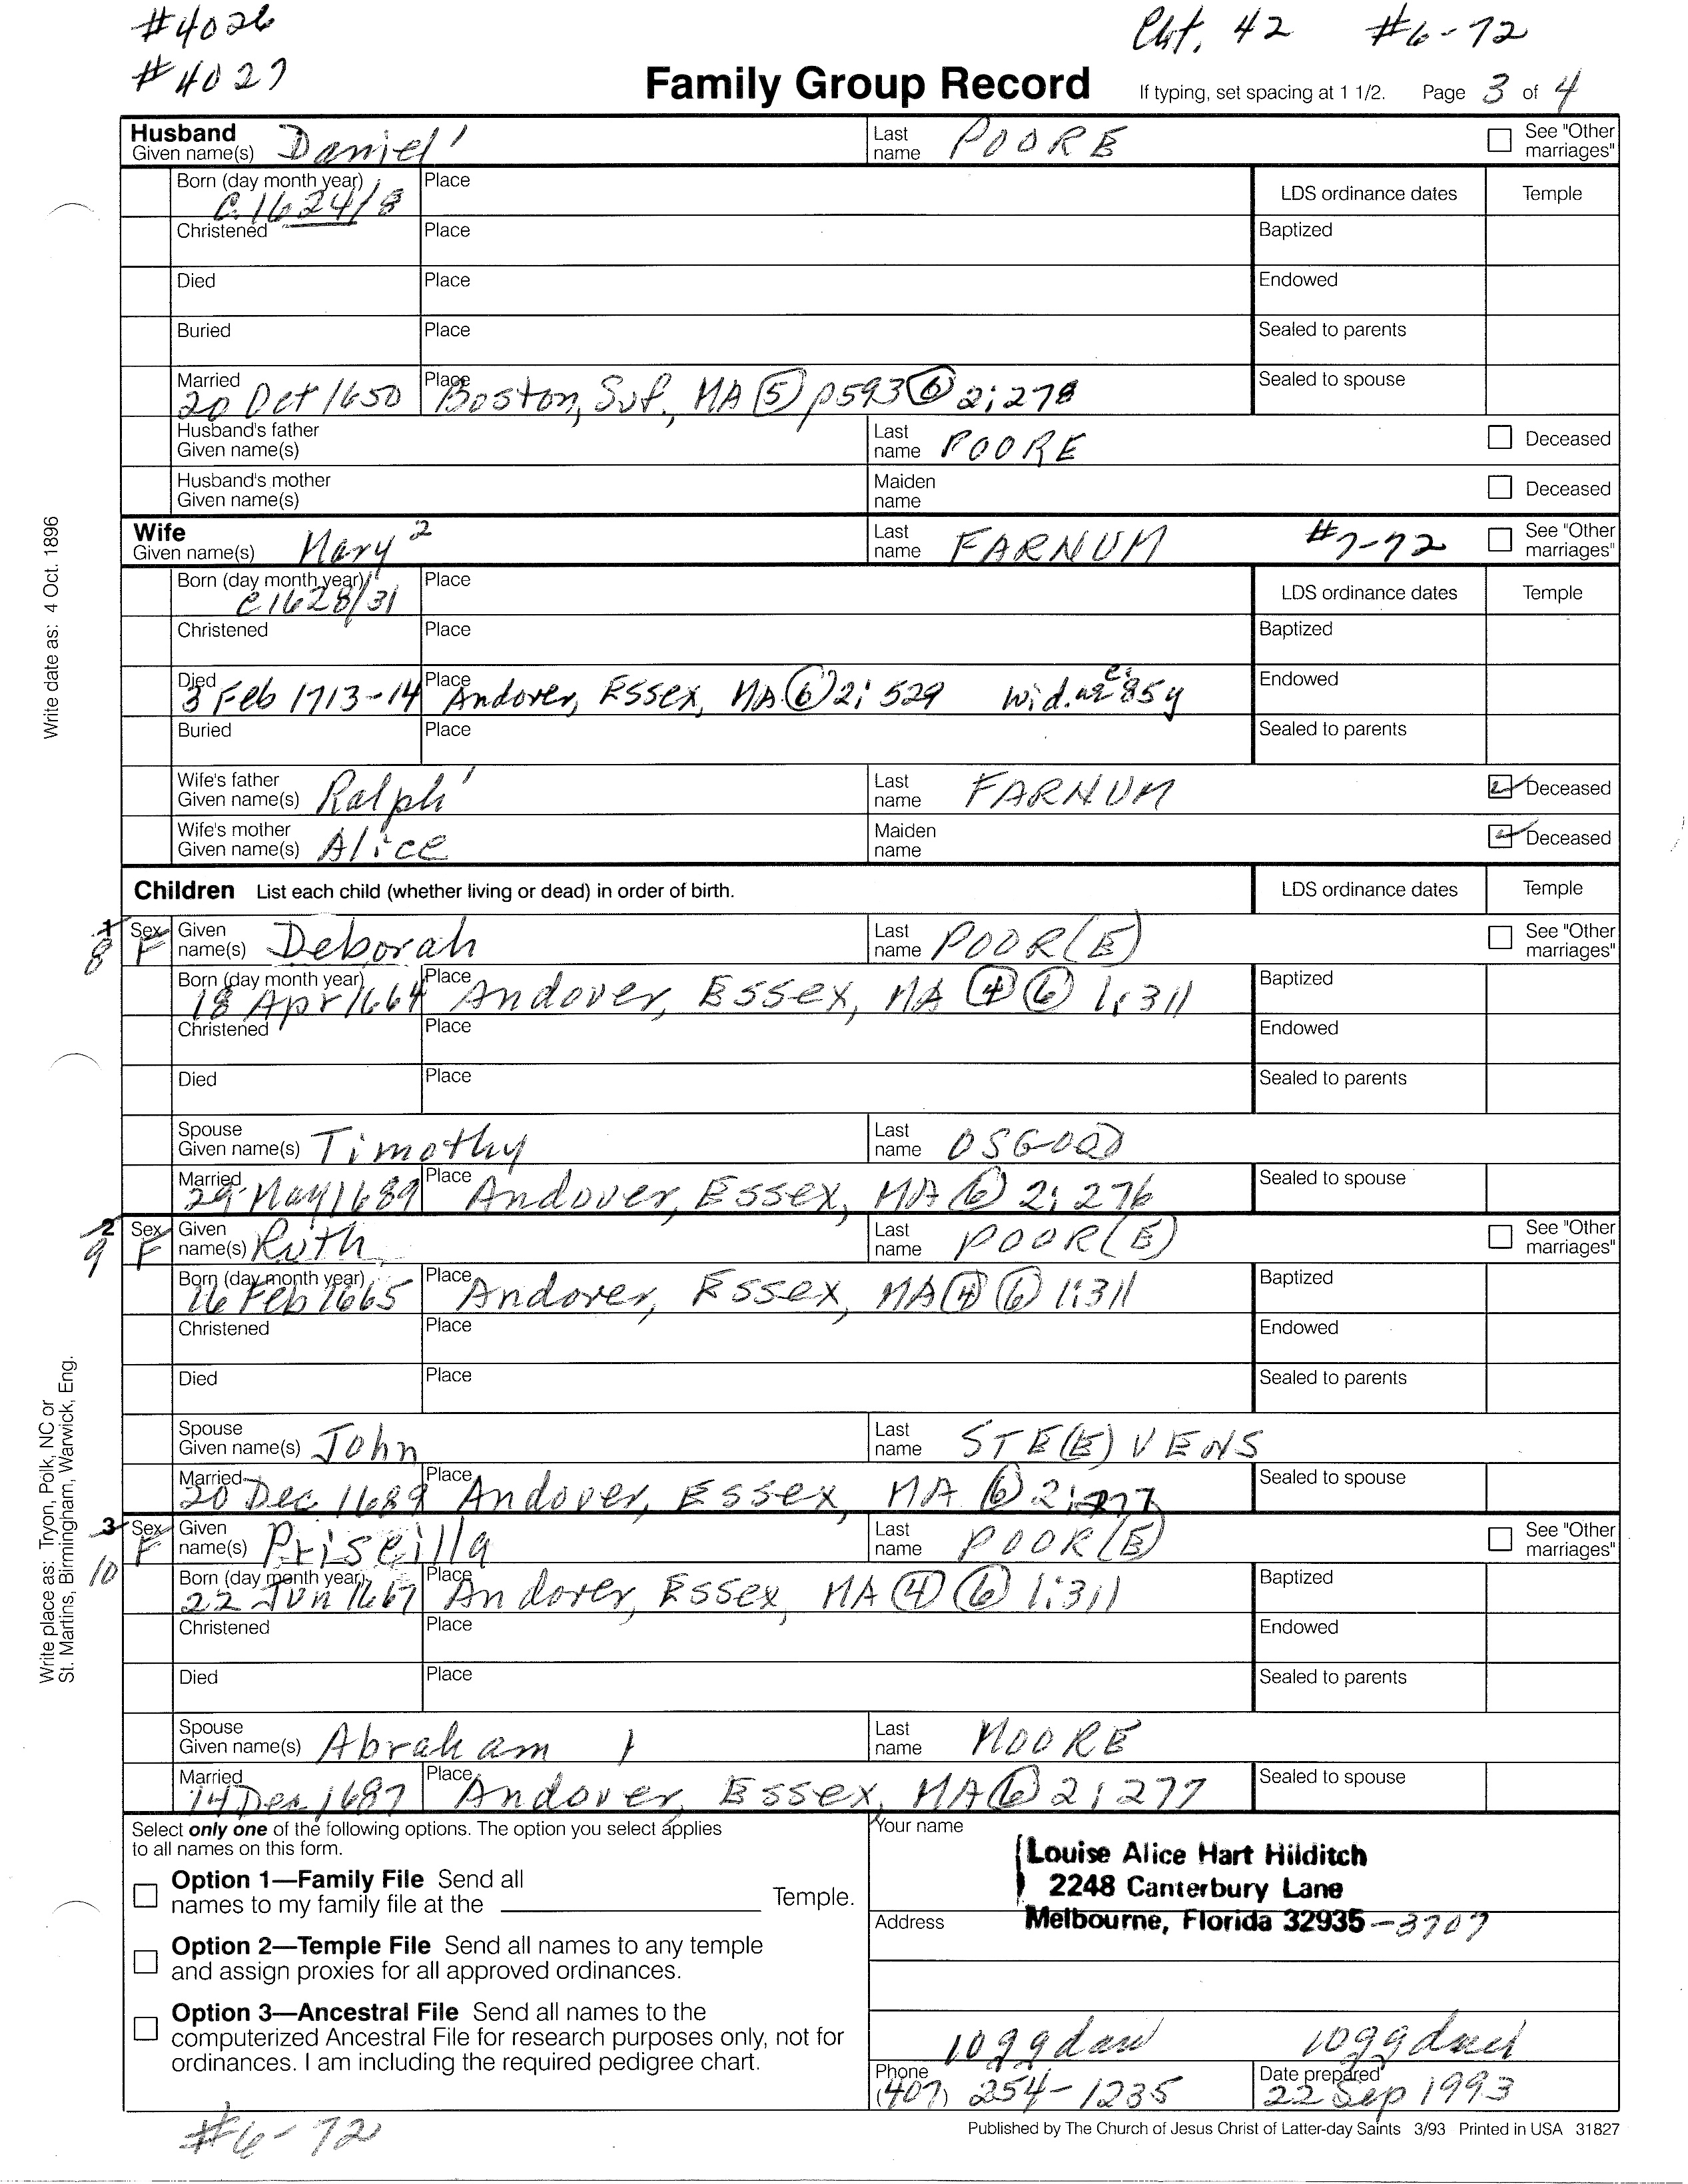 #4026
#4027
Cht. 42 #6-72
Family Group Record If typing, set spacing at 1 1/2. Page 3 of 4
Husband
Given name(s) Daniel 1 Last name POORE See "Other marriages"
Born (day month year) C. 1624/8 Place LDS ordinance dates Temple
Christened Place Baptized
Died Place Endowed
Buried Place Sealed to parents
Married 20 Oct 1650 Place Boston, Suf., MA (5) p593 (6) 2:278 Sealed to spouse
Husband's father Given name(s) Last name POORE Deceased
Husband's mother Given name(s) Maiden name Deceased
Wife
Given name(s) Mary 2 Last name FARNUM #7-72 See "Other marriages"
Born (day month year) c 1628/31 Place LDS ordinance dates Temple
Christened Place Baptized
Died 3 Feb 1713-14 Place Andover, Essex, MA. (6) 2:529 Wid. ae c. 85y Endowed
Buried Place Sealed to parents
Wife's father Given name(s) Ralph 1 Last name FARNUM Deceased
Wife's mother Given name(s) Alice Maiden name Deceased
Children List each child (whether living or dead) in order of birth. LDS ordinance dates Temple
1 8 Sex F Given name(s) Deborah Last name POOR(E) See "Other marriages"
Born (day month year) 18 Apr 1664 Place Andover, Essex, MA (4) (6) 1:311 Baptized
Christened Place Endowed
Died Place Sealed to parents
Spouse Given name(s) Timothy Last name OSGOOD
Married 29 May 1689 Place Andover, Essex, MA (6) 2:276 Sealed to spouse
2 9 Sex F Given name(s) Ruth Last name POOR(E) See "Other marriages"
Born (day month year) 16 Feb 1665 Place Andover, Essex, MA (4) (6) 1:311 Baptized
Christened Place Endowed
Died Place Sealed to parents
Spouse Given name(s) John Last name STE(E)VENS
Married 20 Dec 1689 Place Andover, Essex, MA (6) 2:277 Sealed to spouse
3 10 Sex F Given name(s) Priscilla Last name POOR(E) See "Other marriages"
Born (day month year) 22 Jun 1667 Place Andover, Essex, MA (4) (6) 1:311 Baptized
Christened Place Endowed
Died Place Sealed to parents
Spouse Given name(s) Abraham 1 Last name MOORE
Married 14 Dec 1687 Place Andover, Essex, MA (6) 2:277 Sealed to spouse
Select only one of the following options. The option you select applies
to all names on this form.
Option 1—Family File Send all
names to my family file at the Temple.
Option 2—Temple File Send all names to any temple
and assign proxies for all approved ordinances.
Option 3—Ancestral File Send all names to the
computerized Ancestral File for research purposes only, not for
ordinances. I am including the required pedigree chart.
Your name
Louise Alice Hart Hilditch
2248 Canterbury Lane
Address Melbourne, Florida 32935-3707
10ggdau 10ggdau
Phone (407) 254-1235 Date prepared 22 Sep 1993
#6-72
Published by The Church of Jesus Christ of Latter-day Saints 3/93 Printed in USA 31827
Write date as: 4 Oct. 1896
Write place as: Tryon, Polk, NC or
St. Martins, Birmingham, Warwick, Eng.